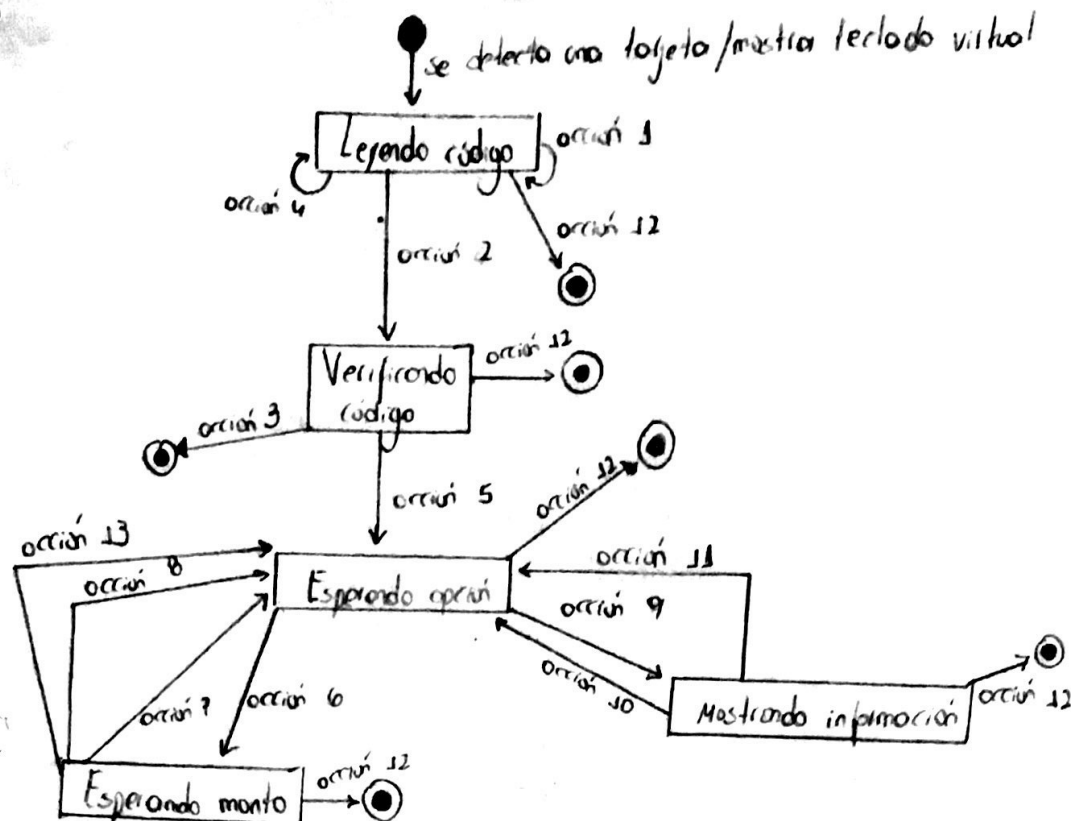 se detecta una tarjeta / mostrar teclado virtual
Leyendo código
acción 1
acción 4
acción 12
acción 2
Verificando
código
acción 12
acción 3
acción 5
acción 12
acción 13
acción 8
acción 11
Esperando opción
acción 9
acción 7
acción 6
acción 10
Mostrando información
acción 12
Esperando monto
acción 12